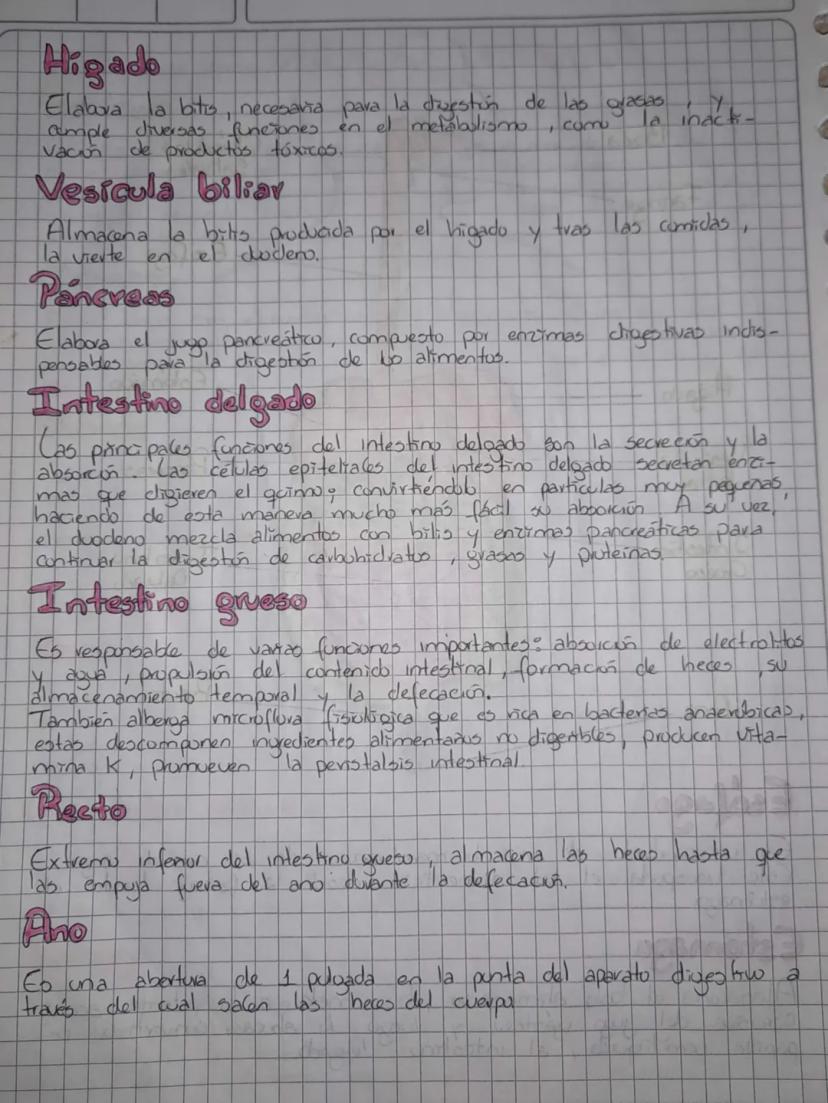 Higado
Elabora la bilis, necesaria para la digestión de las grasas, y
cumple diversas funciones en el metabolismo, como la inacti-
vación de productos tóxicos.
Vesicula biliar
Almacena la bilis producida por el higado y tras las comidas,
la vierte en el duodeno.
Páncreas
Elabora el jugo pancreático, compuesto por enzimas digestivas indis-
pensables para la digestión de los alimentos.
Intestino delgado
Las principales funciones del intestino delgado son la secreción y la
absorción. Las células epiteliales del intestino delgado secretan enzi-
mas que digieren el quimo, convirtiéndolo en partículas muy pequeñas,
haciendo de esta manera mucho más fácil su absorción. A su vez,
el duodeno mezcla alimentos con bilis y enzimas pancreáticas para
continuar la digestión de carbohidratos, grasas y proteínas.
Intestino grueso
Es responsable de varias funciones importantes: absorción de electrolitos
y agua, propulsión del contenido intestinal, formación de heces, su
almacenamiento temporal y la defecación.
También alberga microflora fisiológica que es rica en bacterias anaeróbicas,
estas descomponen ingredientes alimentarios no digeribles, producen vita-
mina K, promueven la peristalsis intestinal.
Recto
Extremo inferior del intestino grueso, almacena las heces hasta que
las empuja fuera del ano durante la defecación.
Ano
Es una abertura de 1 pulgada en la punta del aparato digestivo a
través del cual salen las heces del cuerpo